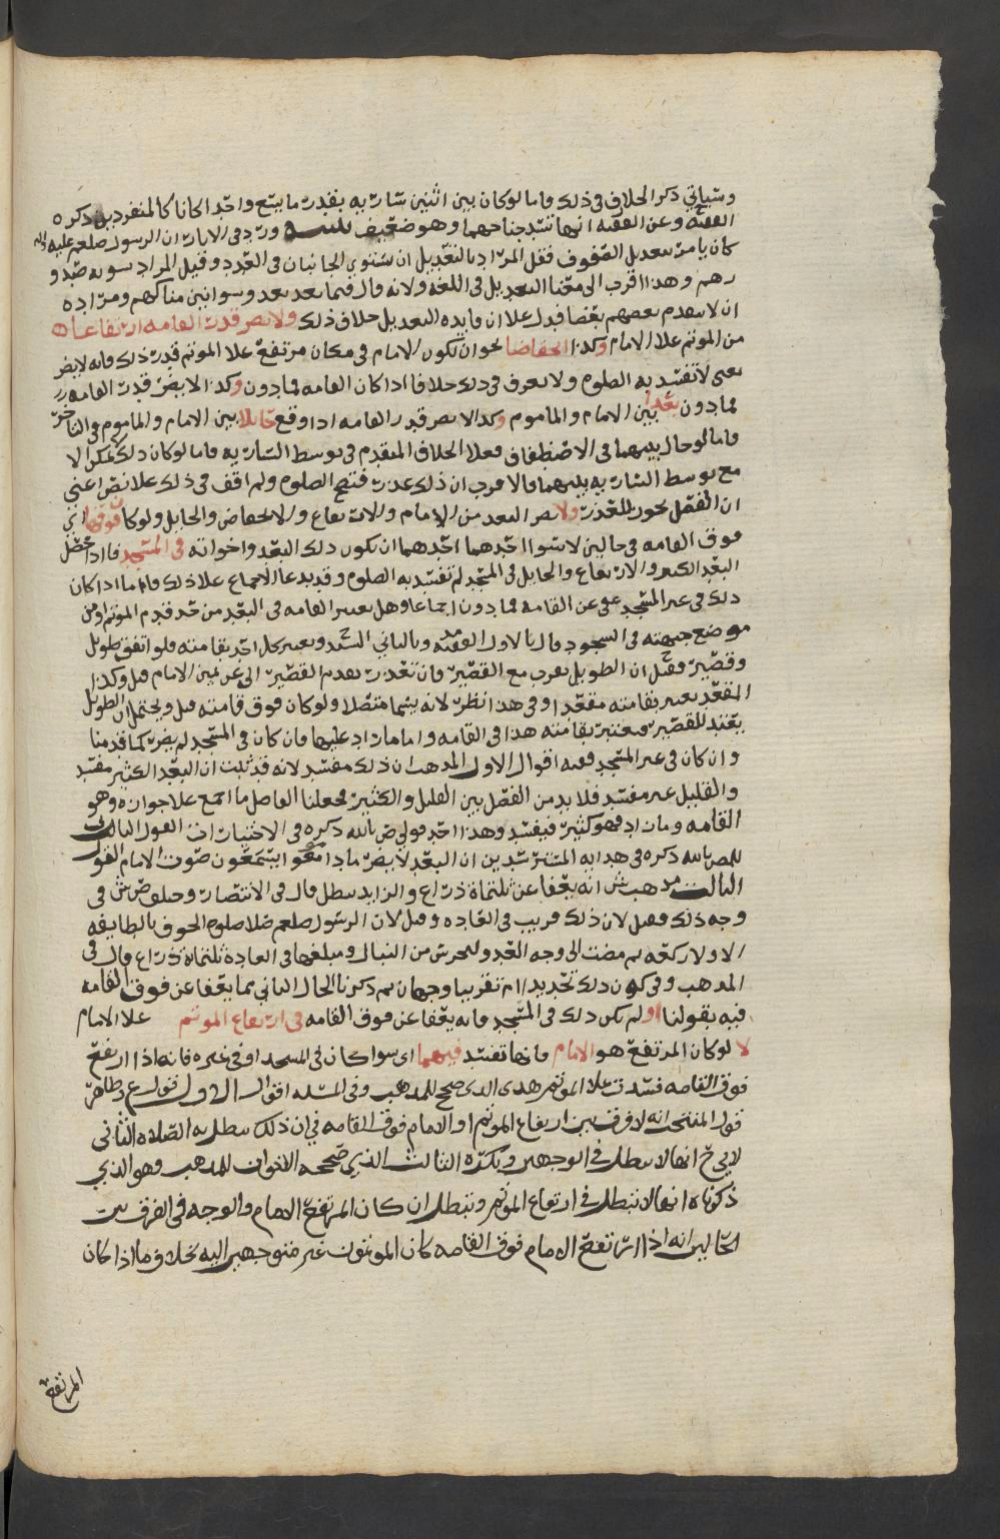 وسياتي ذكر الخلاف في ذلك فاما لو كان بين اثنين ساريه بقدر ما يسع واحد الكانا كالمنفردين ذكره
الفقيه وعن الفقيه انها تسد جناحهما وهو ضعيف ورد في الاثار ان الرسول صلعم عليه واله
كان يامر بتعديل الصفوف فقيل المراد بالتعديل ان يستوي الجانبان في العدد وقيل المراد تسويه صدو
رهم وهذا اقرب الى معنا التعديل في اللغه ولانه قال فيما بعد وسوا بين مناكبهم ومراده
ان لا يتقدم بعضهم بعضا فدل علا ان فايده التعديل خلاف ذلك ولا يضر قدر القامه ارتفاعا
من الموتم علا الامام وكذا انخفاضا نحو ان يكون الامام في مكان مرتفع علا الموتم قدر ذلك فانه لا يضر
بمعنى لا تفسد به الصلوه ولا نعرف في ذلك خلافا اذا كان القامه فما دون وكذا لا يضر قدر القامه
فما دون بعدا بين الامام والماموم وكذا لا يضر قدر القامه اذا وقع حايلا بين الامام والماموم في التاخر
فاما لو حال بينهما في الاصطفاف فعلا الخلاف المتقدم في توسط الساريه فاما لو كان ذلك
مع توسط الساريه بينهما فالاقرب ان ذلك عذر فتصح الصلوه ولم اقف في ذلك علا نص اعني
ان الفصل يجوز للعذر ولا يضر البعد من الامام والارتفاع والانخفاض والحايل ولو كان فوقها اي
فوق القامه في حالين لا سوا احدهما احدهما ان يكون ذلك البعد واخواته في المسجد فاذا حصل
البعد الكثير والارتفاع والحايل في المسجد لم تفسد به الصلوه وقد يدعا الاجماع علا ذلك فاما اذا كان
ذلك في غير المسجد عفي عن القامه فما دون اجماعا وهل تعتبر القامه في البعد من حد قدم الموتم او من
موضع جبهته في السجود قال بالاول الفقيه وبالثاني السيد ويعتبر كل احد بقامته فلو اتفق طويل
وقصير فقيل ان الطويل يقرب مع القصير فان تعذر تقدم القصير الى عن يمين الامام قيل وكذا
المقعد يعتبر بقامته مقعدا وفي هذا نظر لانه متصلا ولو كان فوق قامته قيل ويحتمل ان الطويل
يعتد للقصير فيعتبر بقامته هذا في القامه واما ما زاد عليها فان كان في المسجد لم يضر كما قدمنا
وان كان في غير المسجد ففيه اقوال الاول المذهب ان ذلك مفسد لانه قد ثبت ان البعد الكثير مفسد
والقليل غير مفسد فلا بد من الفصل بين القليل والكثير فجعلنا الفاصل ما اجمع علا جوازه وهو
القامه وما زاد فهو كثير فيفسد وهذا احد قولي ض بالله ذكره في الاختيارات القول الثاني
للمص بالله ذكره في هدايه المسترشدين ان البعد لا يضر ما داموا يسمعون صوت الامام القول
الثالث مذهب ش انه يعفا عن ثلثماة ذراع والزايد يبطل قال في الانتصار وخلف ص ش في
وجه ذلك فقيل لان ذلك قريب في العاده وقيل لان الرسول صلعم صلا صلوه الخوف بالطايفه
الاولا ركعه ثم مضت الى وجه العدو للحرس من النبال ومبلغها في العاده ثلثماة ذراع قال في
المذهب وفي كون ذلك تحديدا ام تقريبا وجهان ثم ذكرنا الحال الثاني مما يعفا عن فوق القامه
فيه بقولنا او لم يكن ذلك في المسجد فانه يعفا عن فوق القامه في ارتفاع الموتم علا الامام
لا لو كان المرتفع هو الامام فانها تفسد فيهما اي سوا كان في المسجد او في غيره فانه اذا ارتفع
فوق القامه فسدت علا الموتم هذي الذي صحح للمذهب وفي المسله اقوال الاول قول ع وظاهر
قول المنتخب انه لا فرق بين ارتفاع الموتم او الامام فوق القامه في ان ذلك تبطل به الصلاه الثاني
لابي ح انها لا تبطل في الوجهين وتكره الثالث الذي صححه الاخوان للمذهب وهو الذي
ذكرناه انها لا تبطل في ارتفاع الموتم وتبطل ان كان المرتفع الامام والوجه في الفرق بين
الحالين انه اذا ارتفع الامام فوق القامه كان الموتمون غير متوجهين اليه بخلاف ما اذا كان
المرتفع